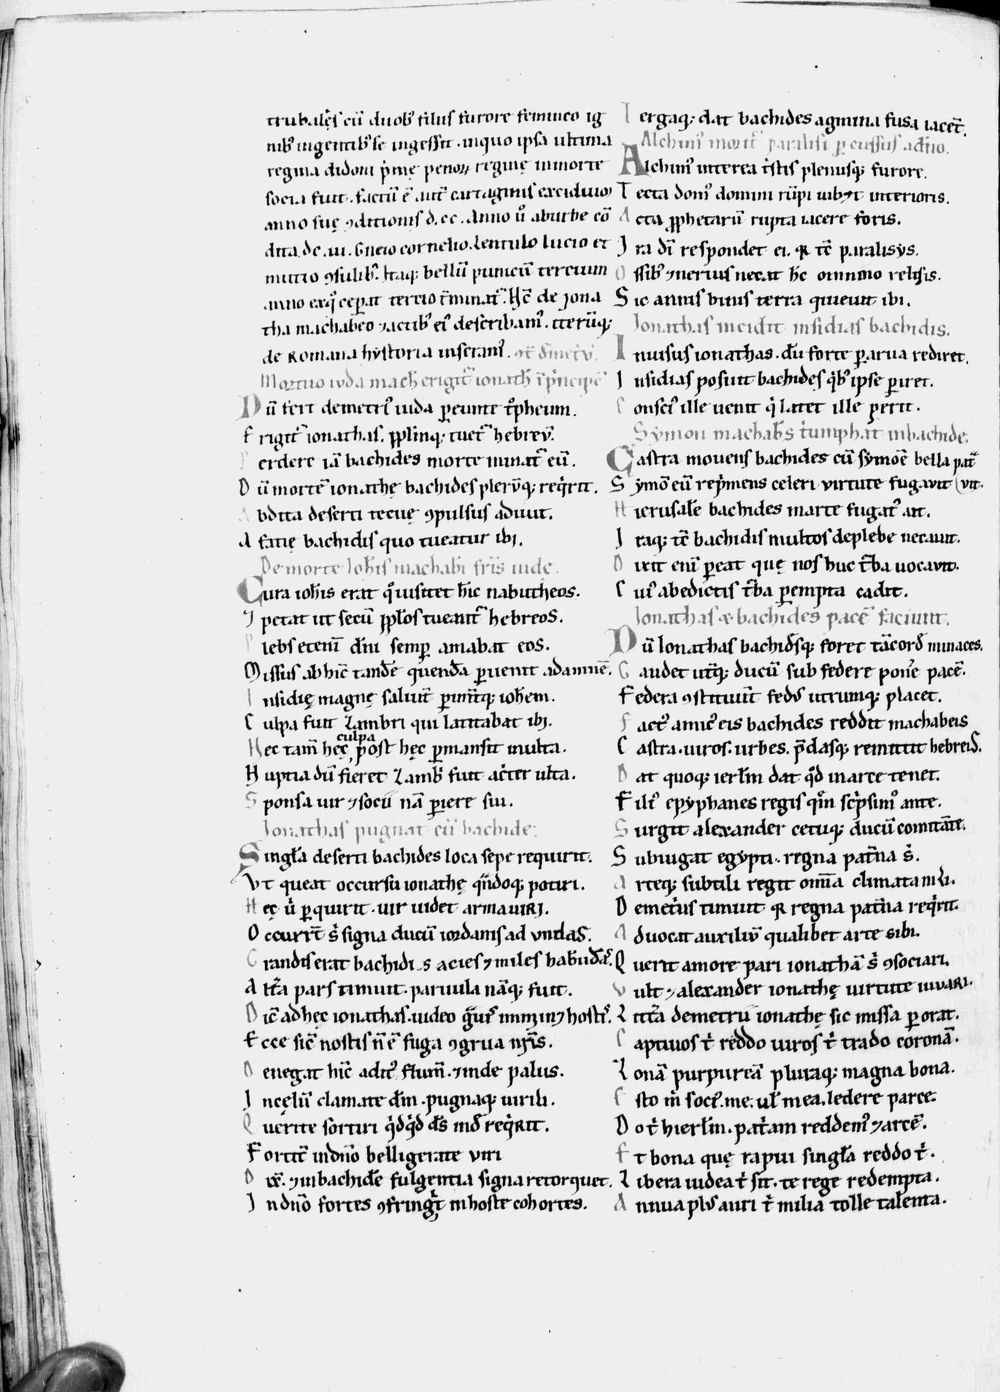 trubalęs cū duob' filiis furore femineo ig
nib' ingentib' se ingessit . inquo ipsa ultima
regina didoni p̄mę penoꝝ reginę inmorte
socia fuit . factū ē aut̄ cartaginis excidiuȝ
anno suę ↄditionis d.cc. Anno ů aburbe cō
dita .dc.ui. Gneio cornelio . Lentulo lucio et
mutio ↄsulib'. Itaq; bellū punicū tercium
anno exq̊ cep̄at tercio t̄minat̄. H̄ de iona
tha machabeo ⁊actib' ei' describam'. iterūq;
de Romana hystoria inseram'.
Mortuo iuda mach erigit̄ ionath ī p̄ncipē
Dū fert demetri' iuda p̄eunte tͥpheum.
Erigit̄ ionathas . p̱pͥlinq; tuet̄ hebreū.
Perdere iā bachides morte minat̄ eū.
Dū mortē ionathę bachides plerūq; reqͥrit.
Abdita deserti tecue ↄpulsus adiuit.
A facie bachidis quo tueatur ibi.
De morte Joh̄is machabi fr̄is iude.
Cura ioh̄is erat qͦ iusitet h̄ic nabutheos.
Ipetat ut secū p̱plos tueant̄ hebreos.
Plebs etenī d̄m semp̱ amabat eos.
Missus abhinc tandē quendā p̱uenit ad amnē.
Insidię magnę saliut̄ p̱imītq; iohem.
Culpa fuit Zambri qui latitabat ibi.
Hec tam̄ hęc culpa post hęc p̱mansit inulta.
Nuptia dū fieret Zambͥ fuit acͥter ulta.
Sponsa uir ⁊socii nā p̱iere sui.
Jonathas pugnat cū bachide.
Singl̄a deserti bachides loca sepe requirit.
Vt queat occursu ionathę qn̄doq; potiri.
Hęc ů p̱quirit . uir uidet arma uiri.
Occurr̄t s; signa ducū iordanis ad undas.
Grandis erat bachidis acies ⁊ miles habūdās.
Alt̄a pars timuit . paruula nāq; fuit.
Dic̄ adhęc ionathas . uideo
Ecce sic̄ nostis n̄ ē fuga ↄgrua nr̄is.
Denegat h̄ic adit' flum̄ . ⁊inde palus.
In cęlū clamate d̄m . pugnaq; uirili.
Querite sortiri qͥdqͥd d̄s in̄ reqͥrit.
Fortit̄ in dn̄o belligerate uiri
Dix̄ . ⁊inbachidē fulgentia signa retorquet.
In dn̄o fortes ↄfringt̄ inhoste cohortes.
Tergaq; dat bachides agmina fusa iacēt.
Alchim' morit̄ paralisi p̱cussus a dn̄o.
Alchim' interea tͥstis plenusq; furore.
Tecta dom' domini rūpi iub; ⁊t interioris.
Acta p̱phetarū rupta iacere foris.
Ira d̄i respondet ei . qͣ tē paralisys.
Ossib' ⁊neruis necat h̄c omnino relisis.
Sic annis binis terra quieuit ibi.
Jonathas incidit insidias bachidis.
Inuisus ionathas . dū forte p̱arua rediret.
Insidias posuit bachides qͥb' ipse p̱iret.
Consci' ille uenit qͥ latet ille p̱erit.
Symon machab̄s tͥumphat inbachide.
Castra mouens bachides cū symoē bella pat̄
Symō cū rep̄mens celeri uirtute fugauit (uit.
Hierusalē bachides marte fugat' ait.
Itaq; tē bachidis multos deplebe necauit.
Dixit enī p̱eat que nos huc t̄ba uocauit.
Cui' abedictis t̄ba p̱empta cadit.
Jonathas & bachides pacē faciunt.
Dū Ionathas bachid̄sq; foret tā cord̄ minaces.
Gaudet ut̄q; ducū sub federe pon̄e pacē.
Federa ↄstituūt fedus utrumq; placet.
Fact' amic' eis bachides reddit machabeis
Castra . uiros . urbes . p̄dasq; remittit hebreis.
Dat quoq; ierl̄m dat qͦd marte tenet.
Fili' epyphanes regis qͥm scͥpsim' ante.
Surgit alexander cetuq; ducū comitāte.
Subiugat egypti . regna patͥna s;.
Arteq; subtili regit om̄ia climata nili.
Demetͥus timuit qͣ regna patͥna reqͥrit.
Aduocat auxiliū qualibet arte sibi.
Querit amore pari ionathā s; ↄsociari.
Vult ⁊ alexander ionathę uirtute iuuari.
Litt̄a demetrii ionathę sic missa p̱orat.
Captiuos tͥ reddo uiros tͥ trado coronā.
Zonā purpureā pluraq; magna bona.
Esto m̄ soci'. me . uł mea . ledere parce.
Do tͥ hierl̄m . patͥam reddem' ⁊arcē.
Et bona quę rapui singl̄a reddo tͥ.
Libera iudea tͥ sit . te rege redempta.
Annua plus auri tͥ milia tolle talenta.